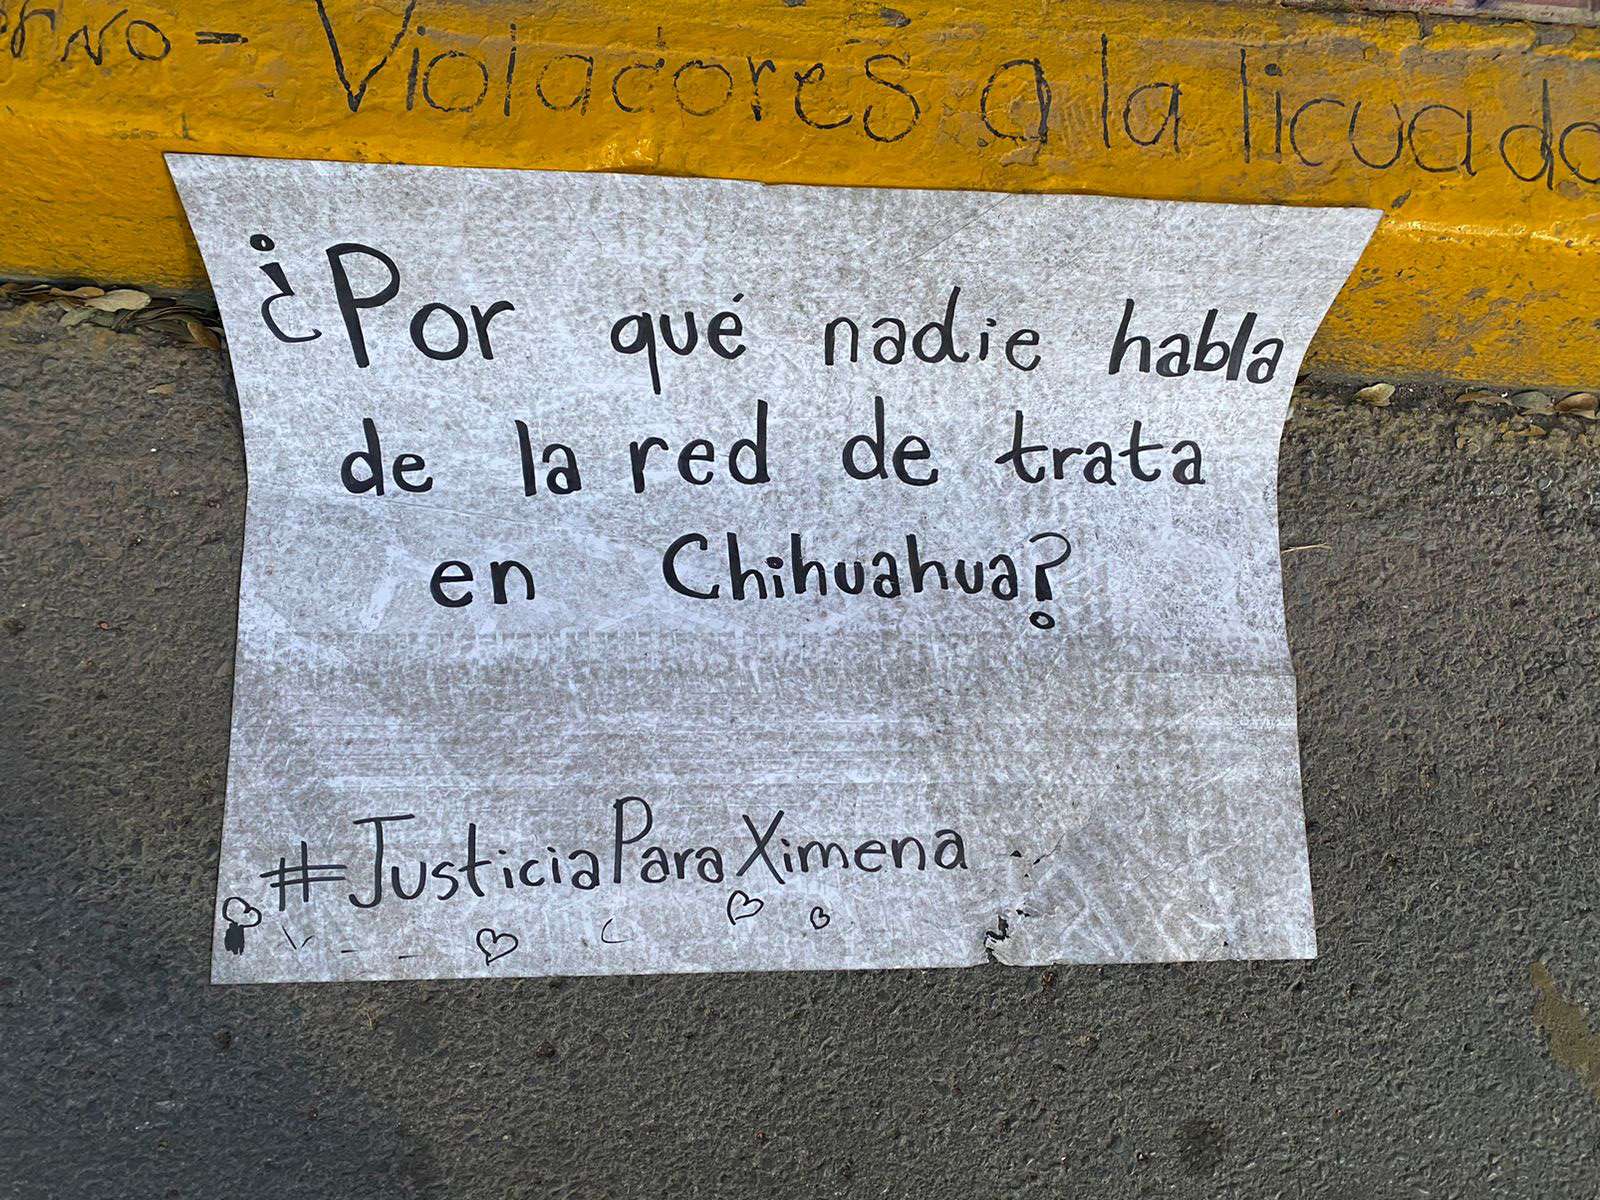 Violadores a la licuado
¿Por qué nadie habla
de la red de trata
en Chihuahua?
#JusticiaParaXimena